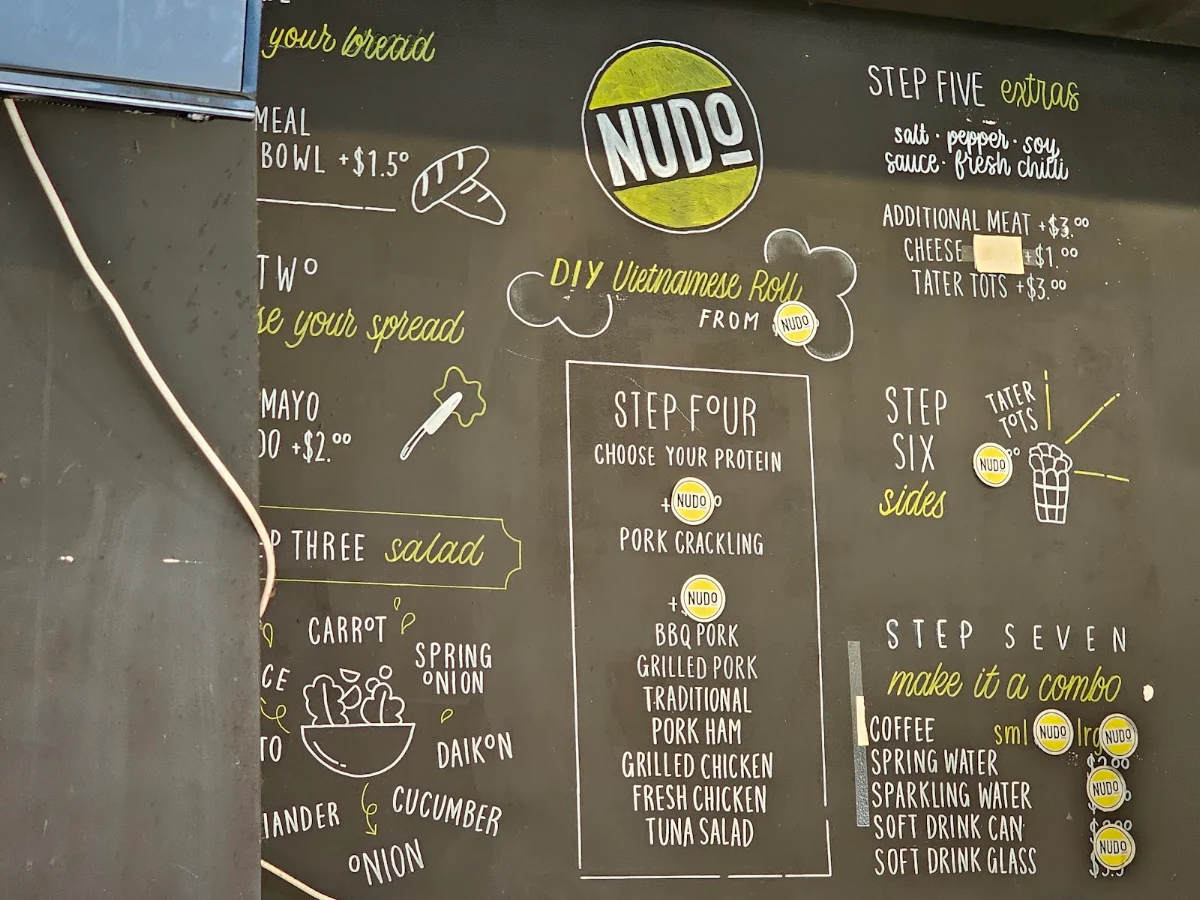 your bread
MEAL
BOWL +$1.50
TWO
your spread
MAYO
+$2.00
THREE salad
CARROT
SPRING
ONION
DAIKON
CUCUMBER
ONION
NUDO
DIY Vietnamese Roll
FROM NUDO
STEP FOUR
CHOOSE YOUR PROTEIN
+ NUDO
PORK CRACKLING
+ NUDO
BBQ PORK
GRILLED PORK
TRADITIONAL
PORK HAM
GRILLED CHICKEN
FRESH CHICKEN
TUNA SALAD
STEP FIVE extras
salt · pepper · soy
sauce · fresh chilli
ADDITIONAL MEAT +$3.00
CHEESE +$1.00
TATER TOTS +$3.00
STEP
SIX
sides
TATER
TOTS
NUDO
STEP SEVEN
make it a combo
COFFEE sml NUDO lrg NUDO
SPRING WATER
SPARKLING WATER NUDO
SOFT DRINK CAN
SOFT DRINK GLASS NUDO